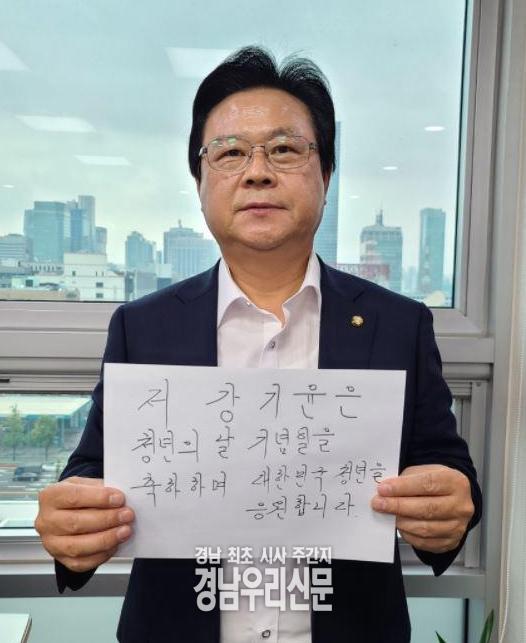 저 강기윤은
청년의 날 기념일을
축하하며 대한민국 청년을
응원합니다.
경남 최초 시사 주간지
경남우리신문